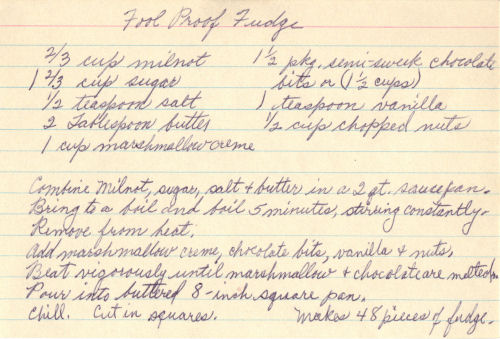 Fool Proof Fudge
2/3 cup milnot
1 2/3 cup sugar
1/2 teaspoon salt
2 Tablespoon butter
1 cup marshmallow creme
1 1/2 pkg. semi-sweek chocolate
bits or (1 1/2 cups)
1 teaspoon vanilla
1/2 cup chopped nuts
Combine Milnot, sugar, salt & butter in a 2 qt. saucepan.
Bring to a boil and boil 5 minutes, stirring constantly.
Remove from heat.
Add marshmallow creme, chocolate bits, vanilla & nuts.
Beat vigorously until marshmallow & chocolate are melted
Pour into buttered 8-inch square pan.
Chill. Cut in squares. Makes 48 pieces of fudge.